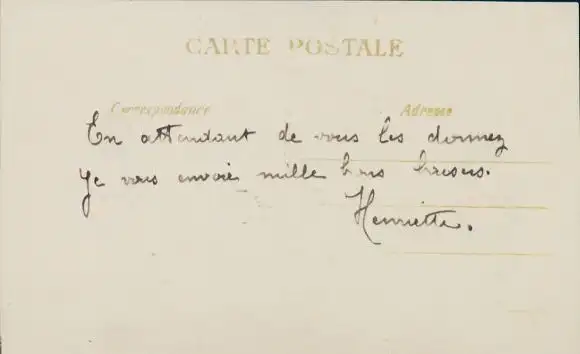 CARTE POSTALE
Correspondance
Adresse
En attendant de vous les donnez
Je vous envoie mille bons baisers.
Henriette.